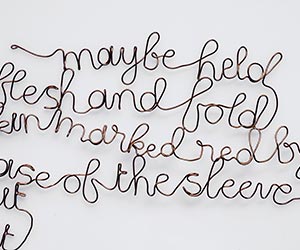 maybe held
flesh and fold
marked red by
of the sleeve